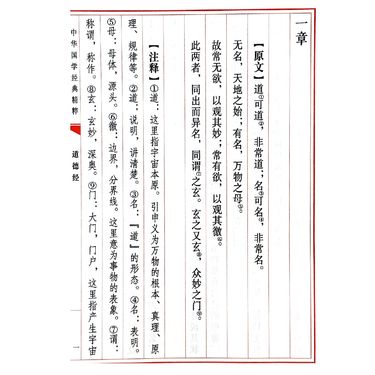 一章
【原文】道①可道②，非常道；名③可名④，非常名。
无名，天地之始；有名，万物之母⑤。
故常无欲，以观其妙；常有欲，以观其徼⑥。
此两者，同出而异名，同谓⑦之玄。玄之又玄⑧，众妙之门⑨。
【注释】①道：这里指宇宙本原。引申义为万物的根本、真理、原
理、规律等。②道：说明，讲清楚。③名：『道』的形态。④名：表明。
⑤母：母体，源头。⑥徼：边界，分界线。这里意为事物的表象。⑦谓：
称谓，称作。⑧玄：玄妙，深奥。⑨门：大门，门户，这里指产生宇宙
中华国学经典精粹
道德经
一